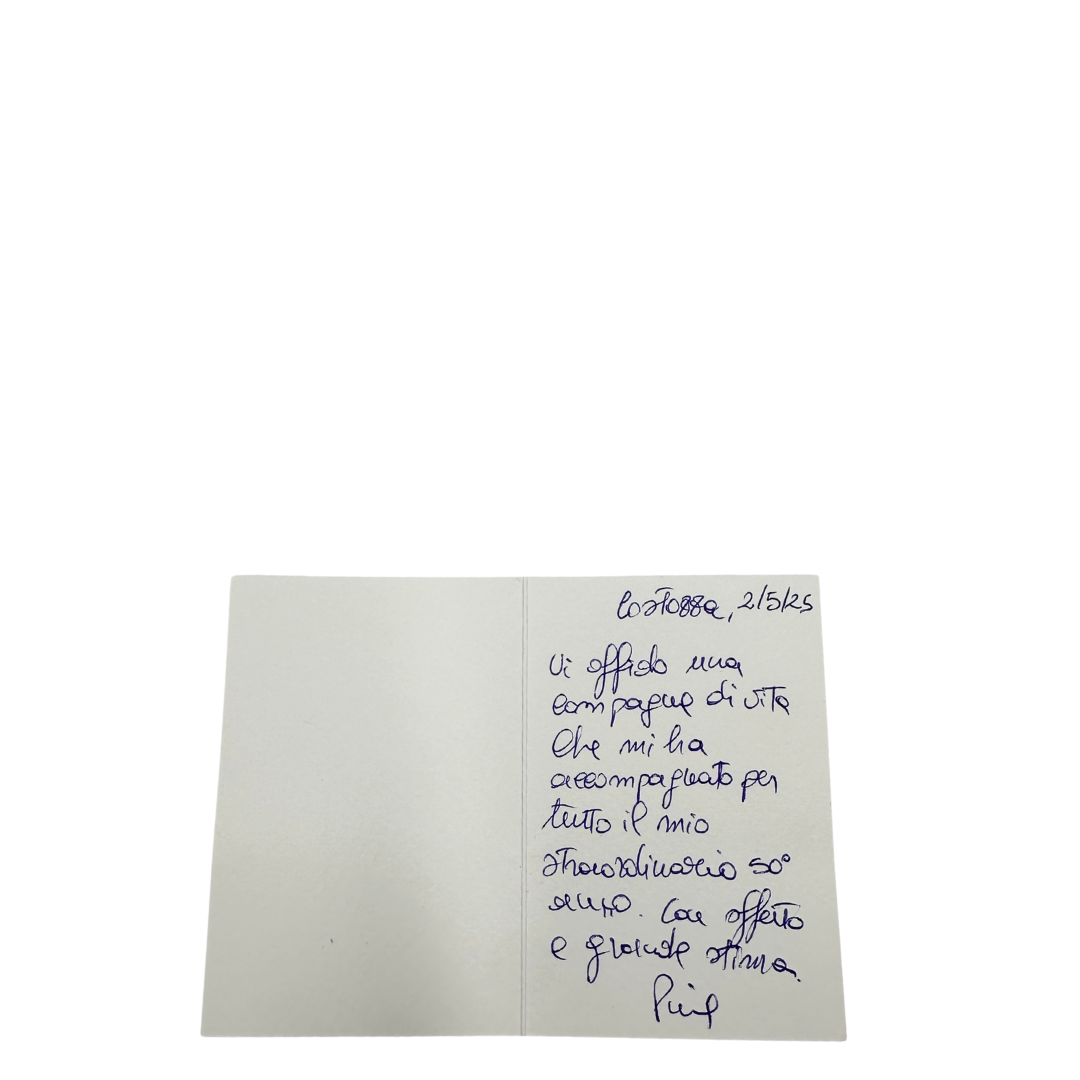 Costozza, 2/5/25
Vi affido una
compagna di vita
Che mi ha
accompagnato per
tutto il mio
straordinario 50°
anno. Con affetto
e grande stima.